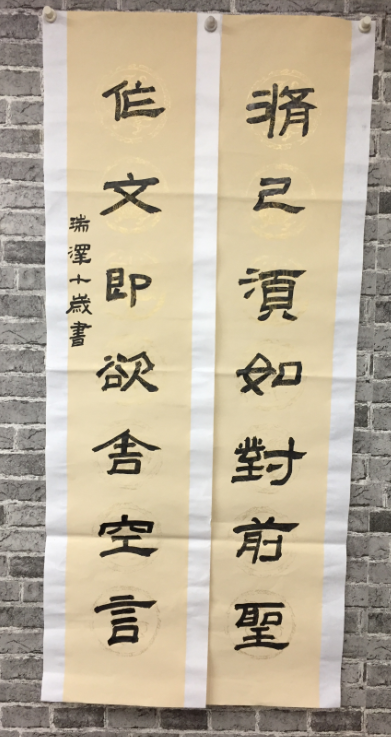 脩己須如對前聖
作文即欲舍空言
瑞澤十歲書